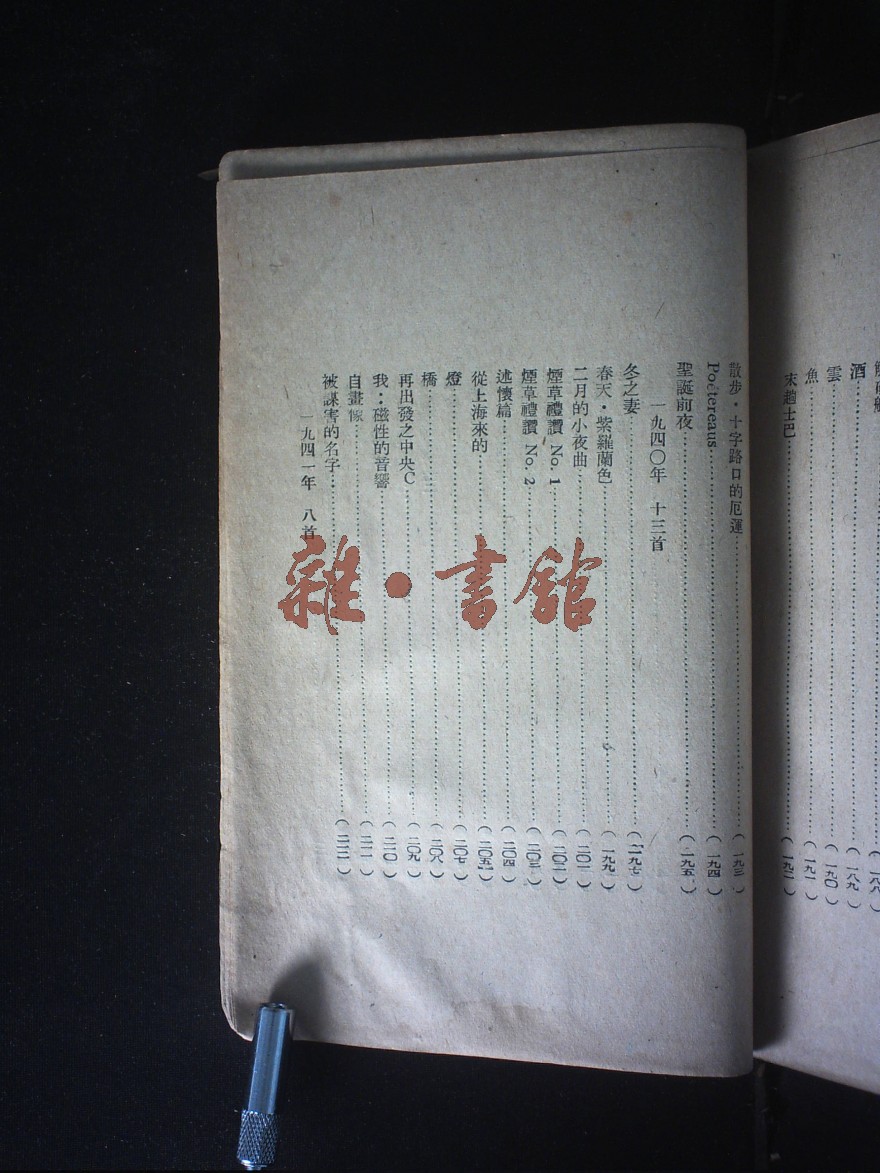 酒 (一八九)
雲 (一九〇)
魚 (一九一)
末趟士巴 (一九二)
散步·十字路口的厄運 (一九三)
Poétereaus (一九四)
聖誕前夜 (一九五)
一九四〇年 十三首
冬之妻 (一九七)
春天·紫羅蘭色 (一九九)
二月的小夜曲 (二〇一)
煙草禮讚 No. 1 (二〇二)
煙草禮讚 No. 2 (二〇三)
述懷篇 (二〇四)
從上海來的 (二〇五)
燈 (二〇七)
橋 (二〇八)
再出發之中央C (二〇九)
我:磁性的音響 (二一〇)
自畫像 (二一一)
被謀害的名字 (二一二)
一九四一年 八首
雜·書館